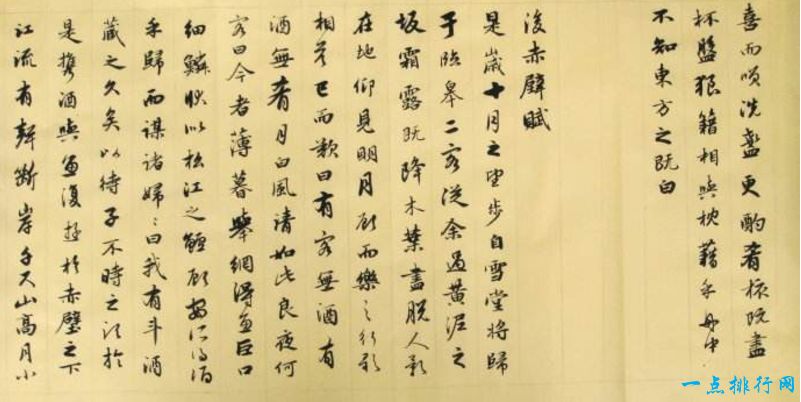 喜而咲洗盞更酌肴核既盡
杯盤狼籍相與枕藉乎舟中
不知東方之既白
後赤壁賦
是歲十月之望步自雪堂將歸
于臨皋二客從余過黃泥之
坂霜露既降木葉盡脫人影
在地仰見明月顧而樂之行歌
相答已而歎曰有客無酒有
酒無肴月白風清如此良夜何
客曰今者薄暮舉網得魚巨口
細鱗狀似松江之鱸顧安所得酒
乎歸而謀諸婦〻曰我有斗酒
藏之久矣以待子不時之須於
是攜酒與魚復遊於赤壁之下
江流有聲斷岸千尺山高月小
一点排行网